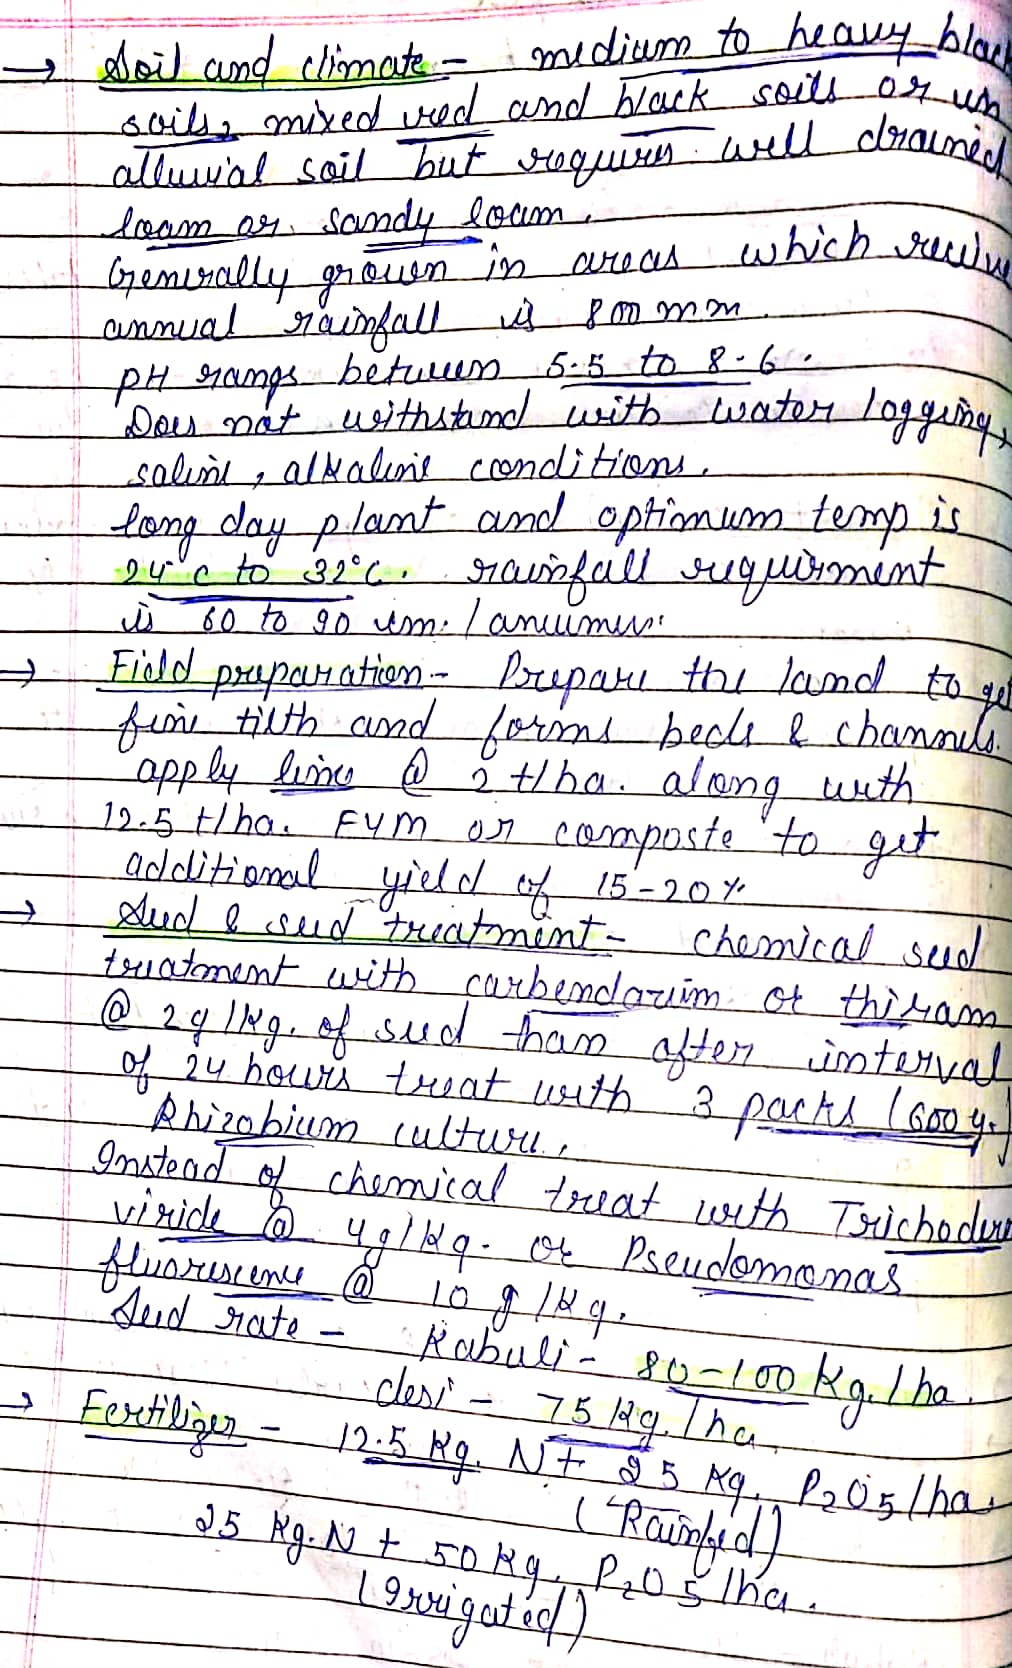 → Soil and climate - medium to heavy black
soils, mixed red and black soils or
alluvial soil but requires well drained
loam or sandy loam.
Generally grown in areas which recieve
annual rainfall is 800 mm.
pH rangs between 5.5 to 8.6.
Does not withstand with water logging,
saline, alkaline conditions.
long day plant and optimum temp is
24°C to 32°C. rainfall requirment
is 60 to 90 cm./
→ Field preparation - Prepare the land to get
fine tilth and forms beds & channels.
apply lime @ 2 t/ha. along with
12.5 t/ha. FYM or composte to get
additional yield of 15-20%
→ Seed & seed treatment - chemical seed
treatment with carbendazim or thiram
@ 2g/kg. of seed than after interval
of 24 hours treat with 3 packs (600 g.)
Rhizobium culture.
Instead of chemical treat with Trichoderma
viride @ 4g/Kg. or Pseudomonas
fluorescence @ 10 g/Kg.
Seed rate - Kabuli - 80-100 Kg./ha.
desi - 75 Kg./ha.
→ Fertilizer - 12.5 Kg. N + 25 Kg. P2O5/ha.
(Rainfed)
25 Kg. N + 50 Kg. P2O5/ha.
(Irrigated)